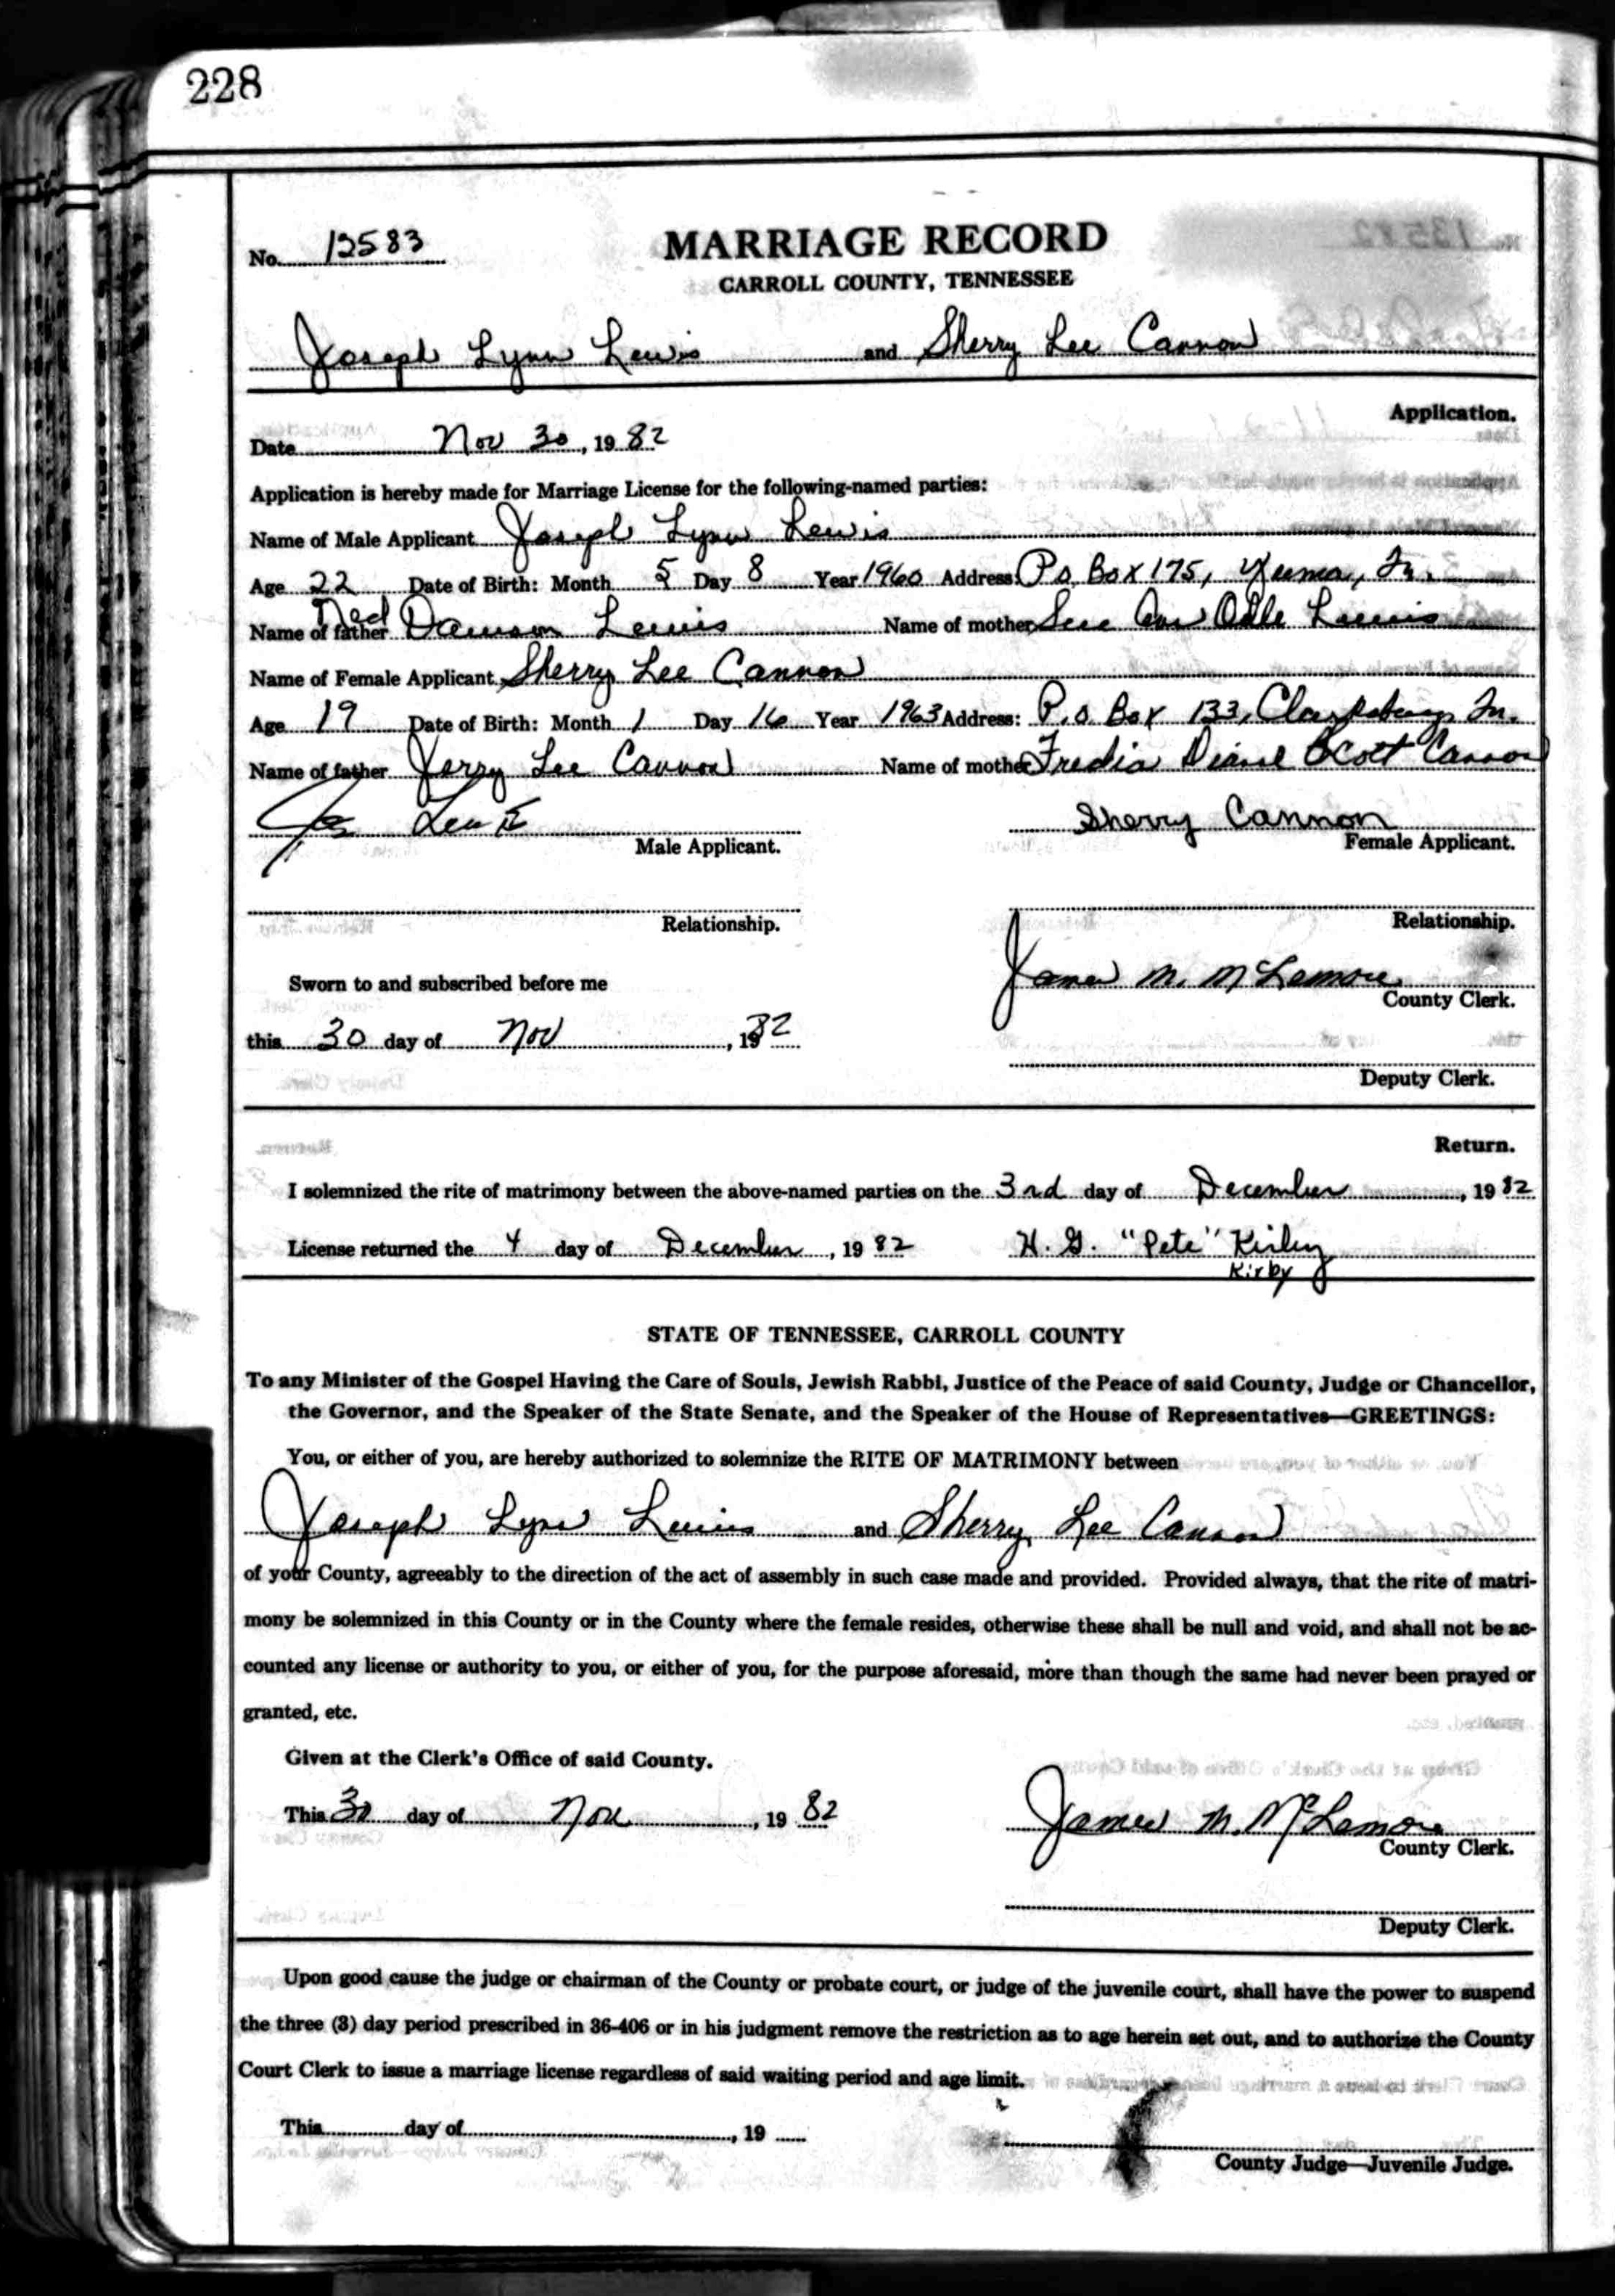 228
No. 13583
MARRIAGE RECORD
CARROLL COUNTY, TENNESSEE
Joseph Lynn Lewis and Sherry Lee Cannon
Application.
Date Nov 30, 1982
Application is hereby made for Marriage License for the following-named parties:
Name of Male Applicant Joseph Lynn Lewis
Age 22 Date of Birth: Month 5 Day 8 Year 1960 Address: P.O. Box 175, Yuma, Tn.
Name of father Ned Dawson Lewis Name of mother Sue Ann Odle Lewis
Name of Female Applicant Sherry Lee Cannon
Age 19 Date of Birth: Month 1 Day 16 Year 1963 Address: P.O. Box 133, Clarksburg Tn.
Name of father Jerry Lee Cannon Name of mother Fredia Diane Scott Cannon
Joe Lewis Sherry Cannon
Male Applicant. Female Applicant.
Relationship. Relationship.
Sworn to and subscribed before me James M. McLemore
County Clerk.
this 30 day of Nov, 1982
Deputy Clerk.
Return.
I solemnized the rite of matrimony between the above-named parties on the 3rd day of December, 1982
License returned the 4 day of December, 1982 H. G. "Pete" Kirby
Kirby
STATE OF TENNESSEE, CARROLL COUNTY
To any Minister of the Gospel Having the Care of Souls, Jewish Rabbi, Justice of the Peace of said County, Judge or Chancellor,
the Governor, and the Speaker of the State Senate, and the Speaker of the House of Representatives—GREETINGS:
You, or either of you, are hereby authorized to solemnize the RITE OF MATRIMONY between
Joseph Lynn Lewis and Sherry Lee Cannon
of your County, agreeably to the direction of the act of assembly in such case made and provided. Provided always, that the rite of matri-
mony be solemnized in this County or in the County where the female resides, otherwise these shall be null and void, and shall not be ac-
counted any license or authority to you, or either of you, for the purpose aforesaid, more than though the same had never been prayed or
granted, etc.
Given at the Clerk's Office of said County.
This 30 day of Nov, 1982 James M. McLemore
County Clerk.
Deputy Clerk.
Upon good cause the judge or chairman of the County or probate court, or judge of the juvenile court, shall have the power to suspend
the three (3) day period prescribed in 36-406 or in his judgment remove the restriction as to age herein set out, and to authorize the County
Court Clerk to issue a marriage license regardless of said waiting period and age limit.
This day of , 19
County Judge—Juvenile Judge.